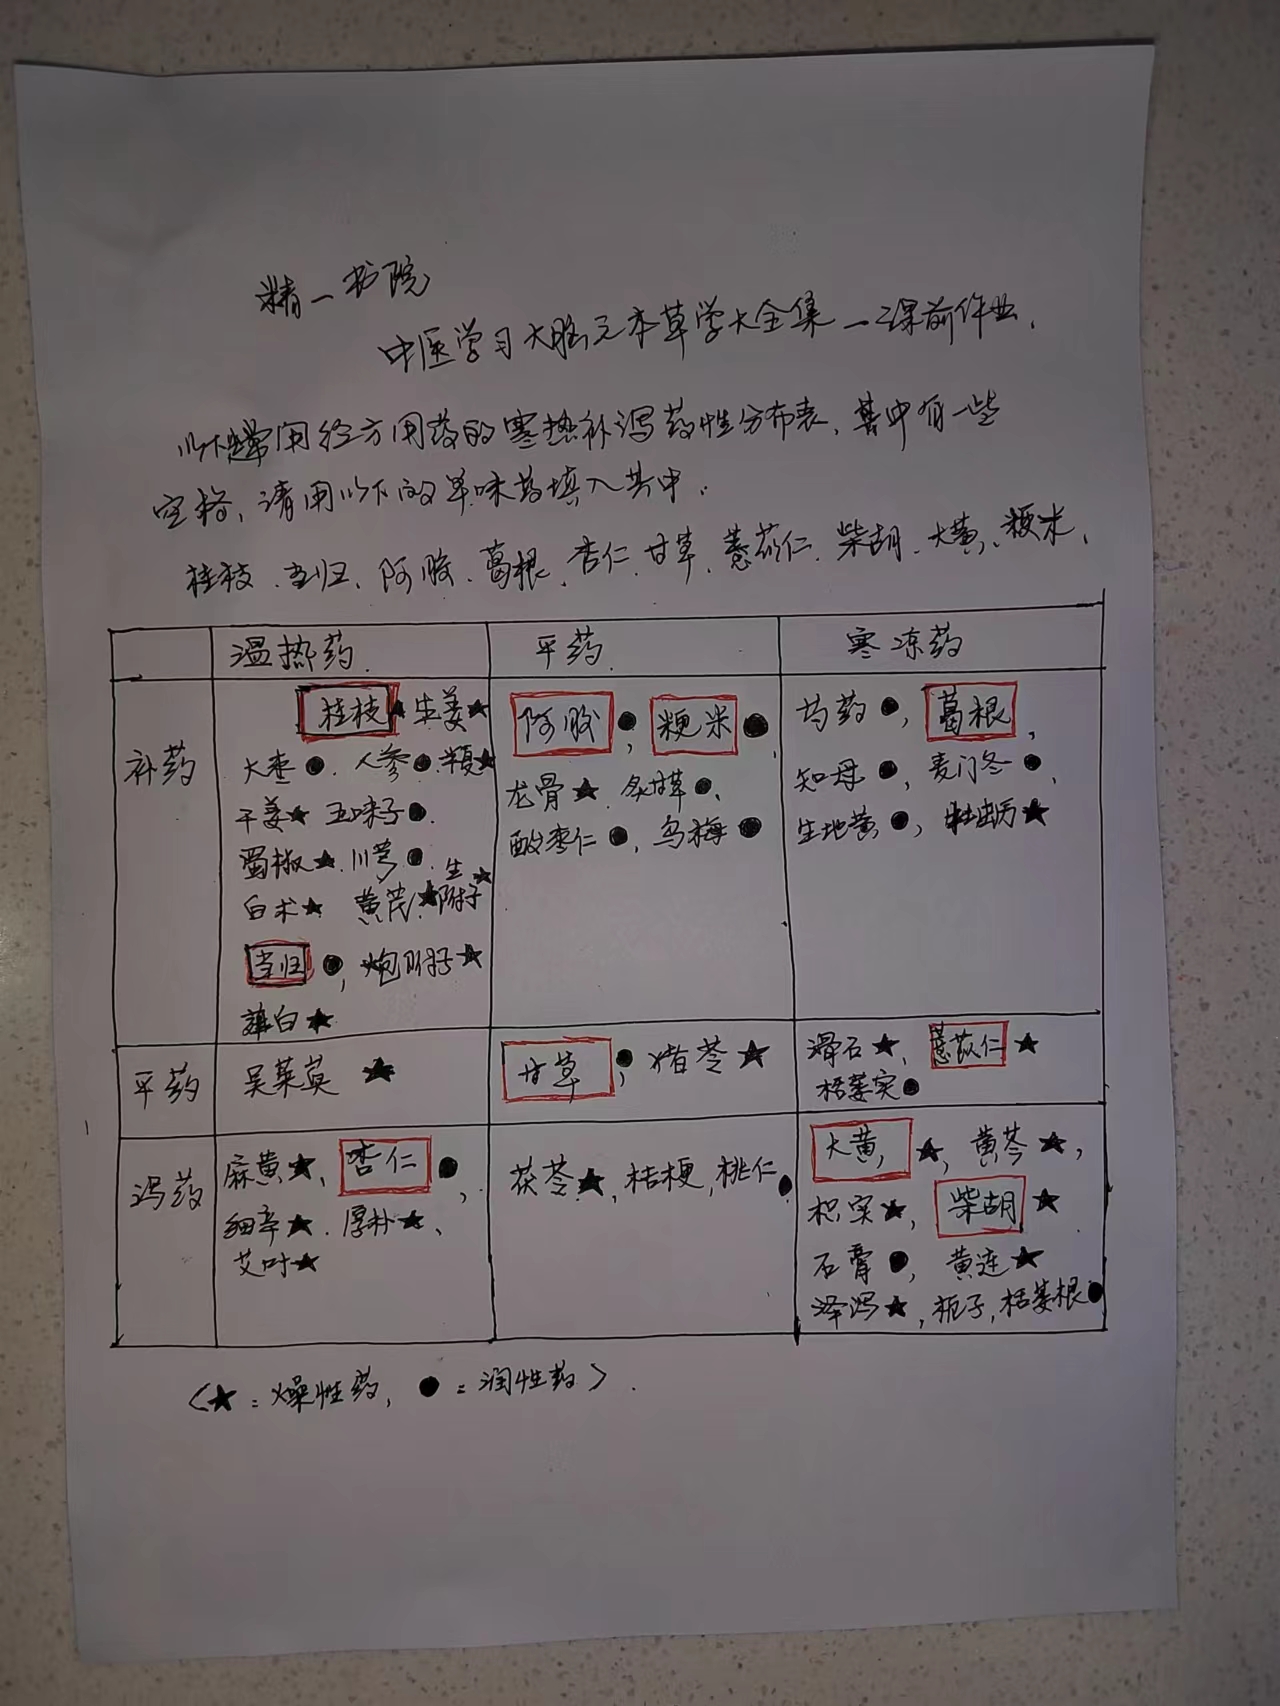 精一书院
中医学习大脑之本草学大全集一课前作业.
以下是常用经方用药的寒热补泻药性分布表,其中有一些
空格,请用以下的单味药填入其中.
桂枝、当归、阿胶、葛根、杏仁、甘草、薏苡仁、柴胡、大黄、粳米、
温热药 平药 寒凉药
补药
桂枝★ 生姜★
大枣●、人参●、半夏★
干姜★ 五味子●、
蜀椒★、川芎●、
白术★ 黄芪★、生附子★
当归●,炮附子★
薤白★
阿胶●,粳米●,
龙骨★、炙甘草●、
酸枣仁●,乌梅●
芍药●,葛根,
知母●,麦门冬●,
生地黄●,牡蛎★
平药
吴茱萸★
甘草●,猪苓★
滑石★,薏苡仁★
栝蒌实●
泻药
麻黄★,杏仁●,
细辛★、厚朴★、
艾叶★
茯苓★,桔梗,桃仁●
大黄,★,黄芩★,
枳实★,柴胡★
石膏●,黄连★
泽泻★,栀子,栝蒌根●
(★=燥性药,●=润性药).